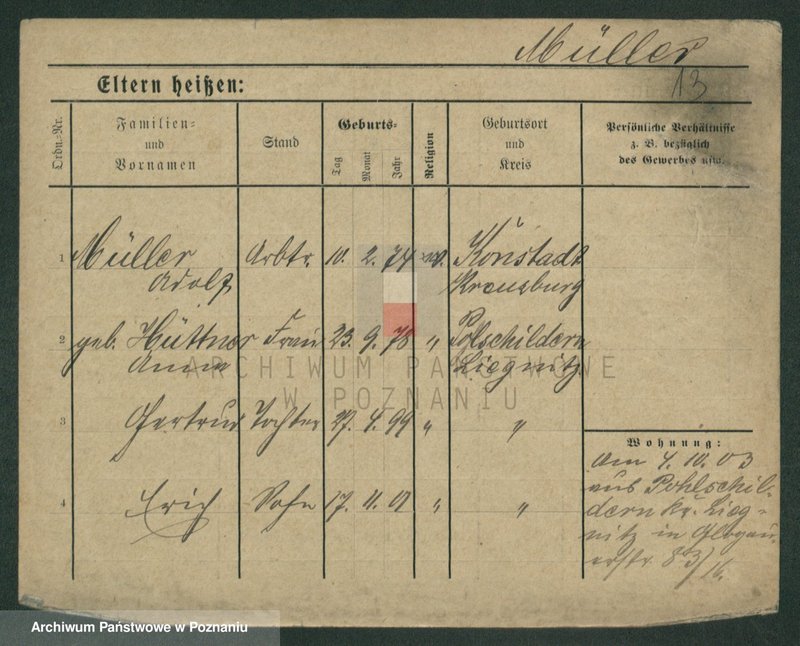 Müller
13
Eltern heißen:
Ordn.-Nr.
Familien- und Vornamen
Stand
Geburts-
Tag
Monat
Jahr
Religion
Geburtsort und Kreis
Persönliche Verhältnisse z. B. bezüglich des Gewerbes usw.
1 Müller Arbtr. 10. 2. 74 ev. Konstadt
Adolf Kreuzburg
2 geb. Hüttner Frau 23. 9. 78 " Pohlschildern
Anna Liegnitz
3 Gertrud Tochter 27. 4. 99 " "
4 Erich Sohn 17. 11. 01 " "
Wohnung:
Am 4. 10. 03
aus Pohlschil-
dern Kr. Lieg-
nitz in Glogau
erstr. 83/
ARCHIWUM PAŃSTWOWE
W POZNANIU
Archiwum Państwowe w Poznaniu